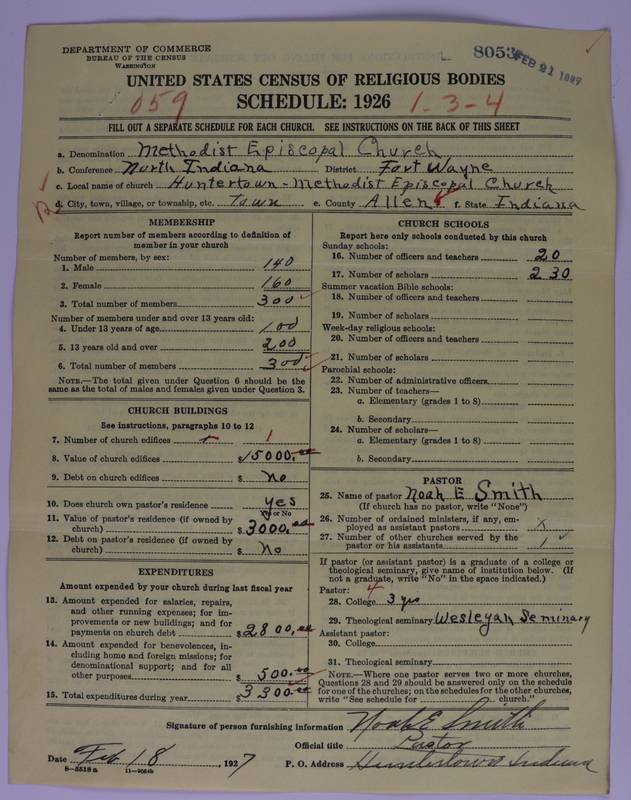 DEPARTMENT OF COMMERCE
BUREAU OF THE CENSUS
WASHINGTON
8053
FEB 21 1927
UNITED STATES CENSUS OF RELIGIOUS BODIES
059 SCHEDULE: 1926 1-3-4
FILL OUT A SEPARATE SCHEDULE FOR EACH CHURCH. SEE INSTRUCTIONS ON THE BACK OF THIS SHEET
a. Denomination Methodist Episcopal Church
b. Conference North Indiana District Fort Wayne
c. Local name of church Huntertown-Methodist Episcopal Church
d. City, town, village, or township, etc. Town e. County Allen f. State Indiana
MEMBERSHIP
Report number of members according to definition of
member in your church
Number of members, by sex:
1. Male 140
2. Female 160
3. Total number of members 300
Number of members under and over 13 years old:
4. Under 13 years of age 100
5. 13 years old and over 200
6. Total number of members 300
NOTE.—The total given under Question 6 should be the
same as the total of males and females given under Question 3.
CHURCH BUILDINGS
See instructions, paragraphs 10 to 12
7. Number of church edifices 1
8. Value of church edifices $15000.00
9. Debt on church edifices $ No
10. Does church own pastor's residence yes
Yes or No
11. Value of pastor's residence (if owned by
church) $3000.00
12. Debt on pastor's residence (if owned by
church) $ No
EXPENDITURES
Amount expended by your church during last fiscal year
13. Amount expended for salaries, repairs,
and other running expenses; for im-
provements or new buildings; and for
payments on church debt $2800.00
14. Amount expended for benevolences, in-
cluding home and foreign missions; for
denominational support; and for all
other purposes $500.00
15. Total expenditures during year $3300.00
CHURCH SCHOOLS
Report here only schools conducted by this church
Sunday schools:
16. Number of officers and teachers 20
17. Number of scholars 230
Summer vacation Bible schools:
18. Number of officers and teachers
19. Number of scholars
Week-day religious schools:
20. Number of officers and teachers
21. Number of scholars
Parochial schools:
22. Number of administrative officers
23. Number of teachers—
a. Elementary (grades 1 to 8)
b. Secondary
24. Number of scholars—
a. Elementary (grades 1 to 8)
b. Secondary
PASTOR
25. Name of pastor Noah E Smith
(If church has no pastor, write "None")
26. Number of ordained ministers, if any, em-
ployed as assistant pastors x
27. Number of other churches served by the
pastor or his assistants 1
If pastor (or assistant pastor) is a graduate of a college or
theological seminary, give name of institution below. (If
not a graduate, write "No" in the space indicated.)
Pastor: 4
28. College 3 yrs
29. Theological seminary Wesleyan Seminary
Assistant pastor:
30. College
31. Theological seminary
NOTE.—Where one pastor serves two or more churches,
Questions 28 and 29 should be answered only on the schedule
for one of the churches; on the schedules for the other churches,
write "See schedule for church."
Signature of person furnishing information Noah E Smith
Official title Pastor
Date Feb 18, 1927 P. O. Address Huntertown Indiana
8—5518a 11—9064b